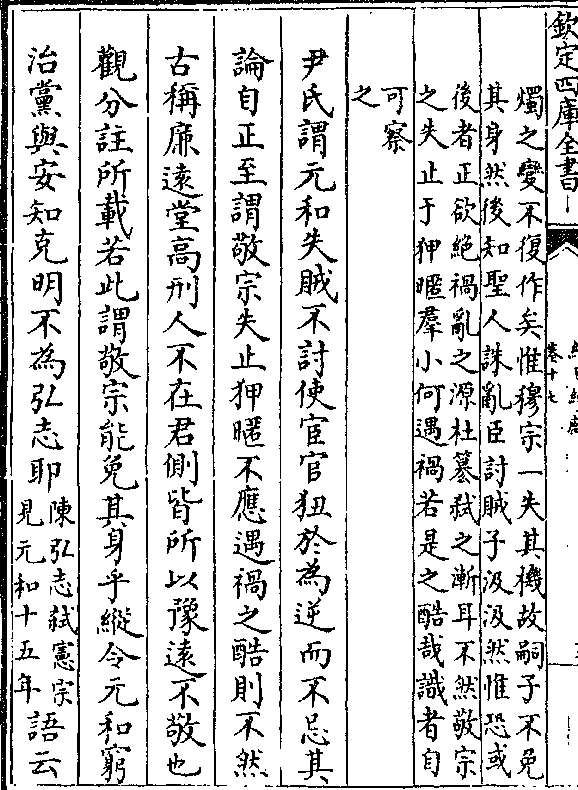 欽定四庫全書
卷十七
燭之變不復作矣惟穆宗一失其機故嗣子不免
其身然後知聖人誅亂臣討賊子汲汲然惟恐或
後者正欲絕禍亂之源杜簒弑之漸耳不然敬宗
之失止于狎暱羣小何遇禍若是之酷哉識者自
可察
之
尹氏謂元和失賊不討使宦官狃於為逆而不忌其
論自正至謂敬宗失止狎暱不應遇禍之酷則不然
古稱廉遠堂高刑人不在君側皆所以豫遠不敬也
觀分註所載若此謂敬宗能免其身乎縱令元和窮
治黨與安知克明不為弘志耶
陳弘志弑憲宗
見元和十五年
語云